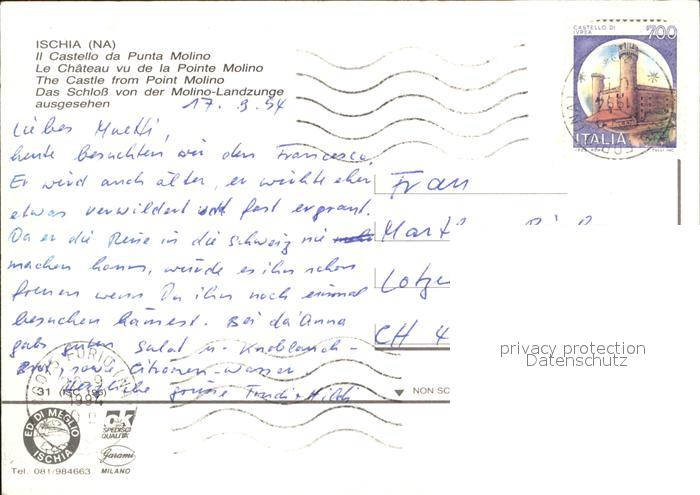 ISCHIA (NA)
Il Castello da Punta Molino
Le Château vu de la Pointe Molino
The Castle from Point Molino
Das Schloß von der Molino-Landzunge
ausgesehen
CASTELLO DI
IVREA
700
ITALIA
17.9.94
Liebes Muetti,
heute besuchten wir den Francesco.
Er wird auch älter, er wirkte eher
etwas verwildert und fast ergraut.
Da er die Reise in die Schweiz nie
machen kann, würde es ihn schon
freuen wenn Du ihn noch einmal
besuchen kämest. Bei da'Anna
gabs guten Salat u. Knoblauch-
brot, sowie Citronen-Wasser
Herzliche Grüsse
Frau
CH 4
privacy protection
Datenschutz
FORIO
1994
31
NON SC
ED. DI MEGLIO
ISCHIA
ok
SPEDISCI
QUALITÀ
Garami
MILANO
Tel. 081/984663